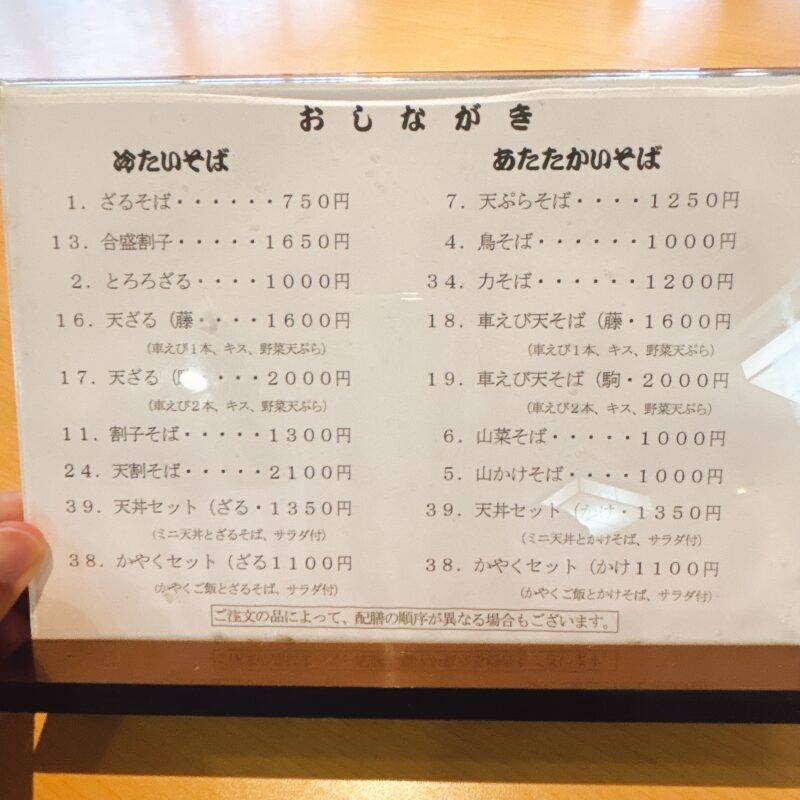 おしながき
冷たいそば
1．ざるそば・・・・・・750円
13．合盛割子・・・・1650円
2．とろろざる・・・・1000円
16．天ざる（藤・・・・1600円
（車えび1本、キス、野菜天ぷら）
17．天ざる（・・・2000円
（車えび2本、キス、野菜天ぷら）
11．割子そば・・・・・1300円
24．天割そば・・・・・2100円
39．天丼セット（ざる・1350円
（ミニ天丼とざるそば、サラダ付）
38．かやくセット（ざる1100円
（かやくご飯とざるそば、サラダ付）
あたたかいそば
7．天ぷらそば・・・・1250円
4．鳥そば・・・・・・1000円
34．力そば・・・・・・1200円
18．車えび天そば（藤・1600円
（車えび1本、キス、野菜天ぷら）
19．車えび天そば（駒・2000円
（車えび2本、キス、野菜天ぷら）
6．山菜そば・・・・・1000円
5．山かけそば・・・・1000円
39．天丼セット（かけ・1350円
（ミニ天丼とかけそば、サラダ付）
38．かやくセット（かけ1100円
（かやくご飯とかけそば、サラダ付）
ご注文の品によって、配膳の順序が異なる場合もございます。